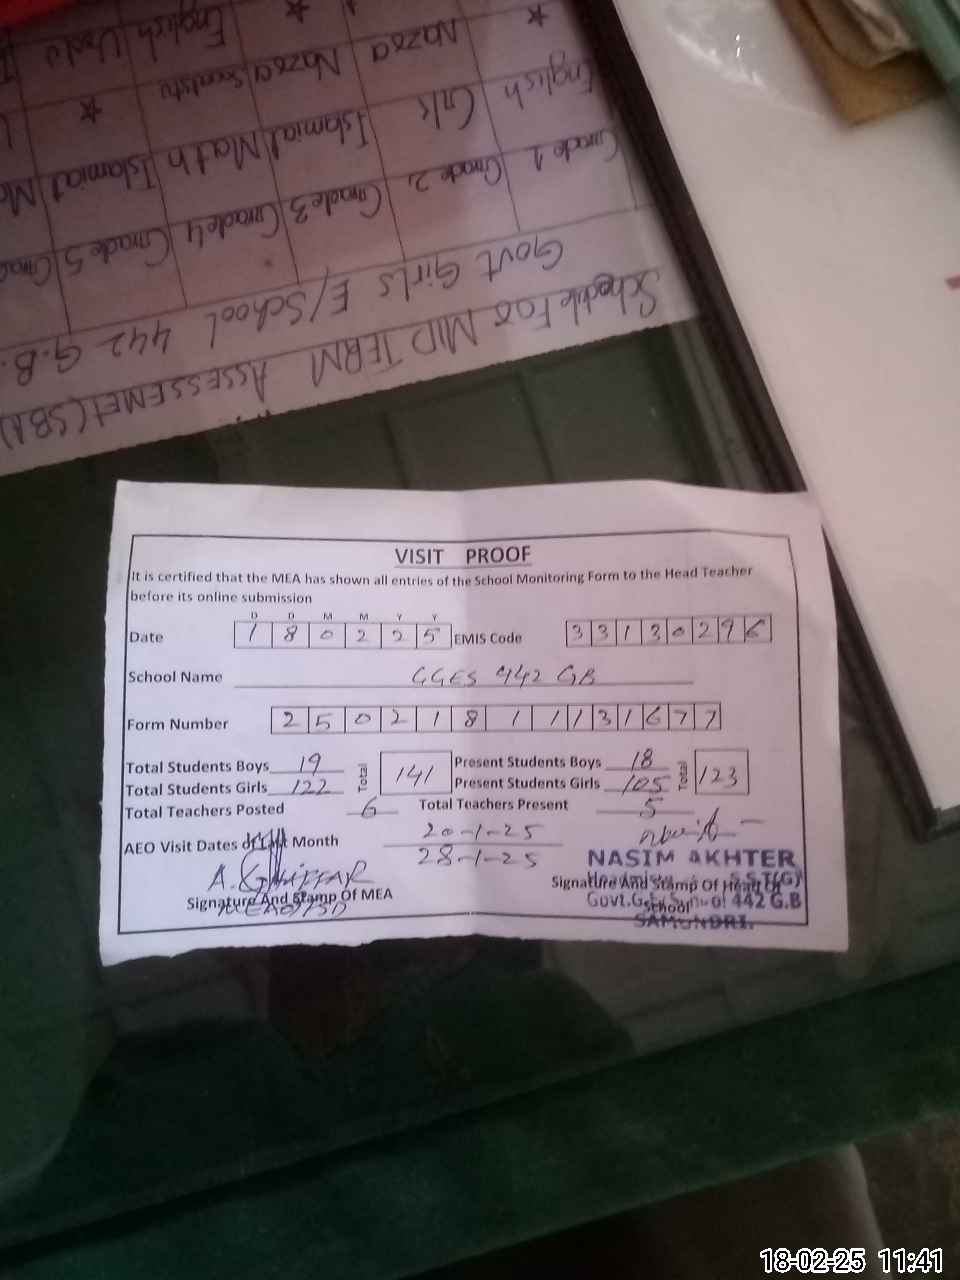 English Urdu
★
★
Nazra Nazra Socalstu
English Gk Islamiat Math Islamiat
★
Grade 1 Grade 2 Grade 3 Grade 4 Grade 5
Govt Girls E/School 442 G.B.
Schedule For MID TERM ASSESSEMET (SBA)
VISIT PROOF
It is certified that the MEA has shown all entries of the School Monitoring Form to the Head Teacher
before its online submission
D D M M Y Y
Date 1 8 0 2 2 5 EMIS Code 3 3 1 3 0 2 9 6
School Name GGES 442 GB
Form Number 2 5 0 2 1 8 1 1 1 3 1 6 7 7
Total Students Boys 19 Total 141 Present Students Boys 18 Total 123
Total Students Girls 122 Present Students Girls 105
Total Teachers Posted 6 Total Teachers Present 5
AEO Visit Dates of Last Month 20-1-25
28-1-25
A. GHAFFAR
NASIM AKHTER
S.S.T(G)
Signature And Stamp Of MEA
Signature And Stamp Of Head Of
School
Govt.G. 442 G.B
SAMUNDRI.
18-02-25 11:41